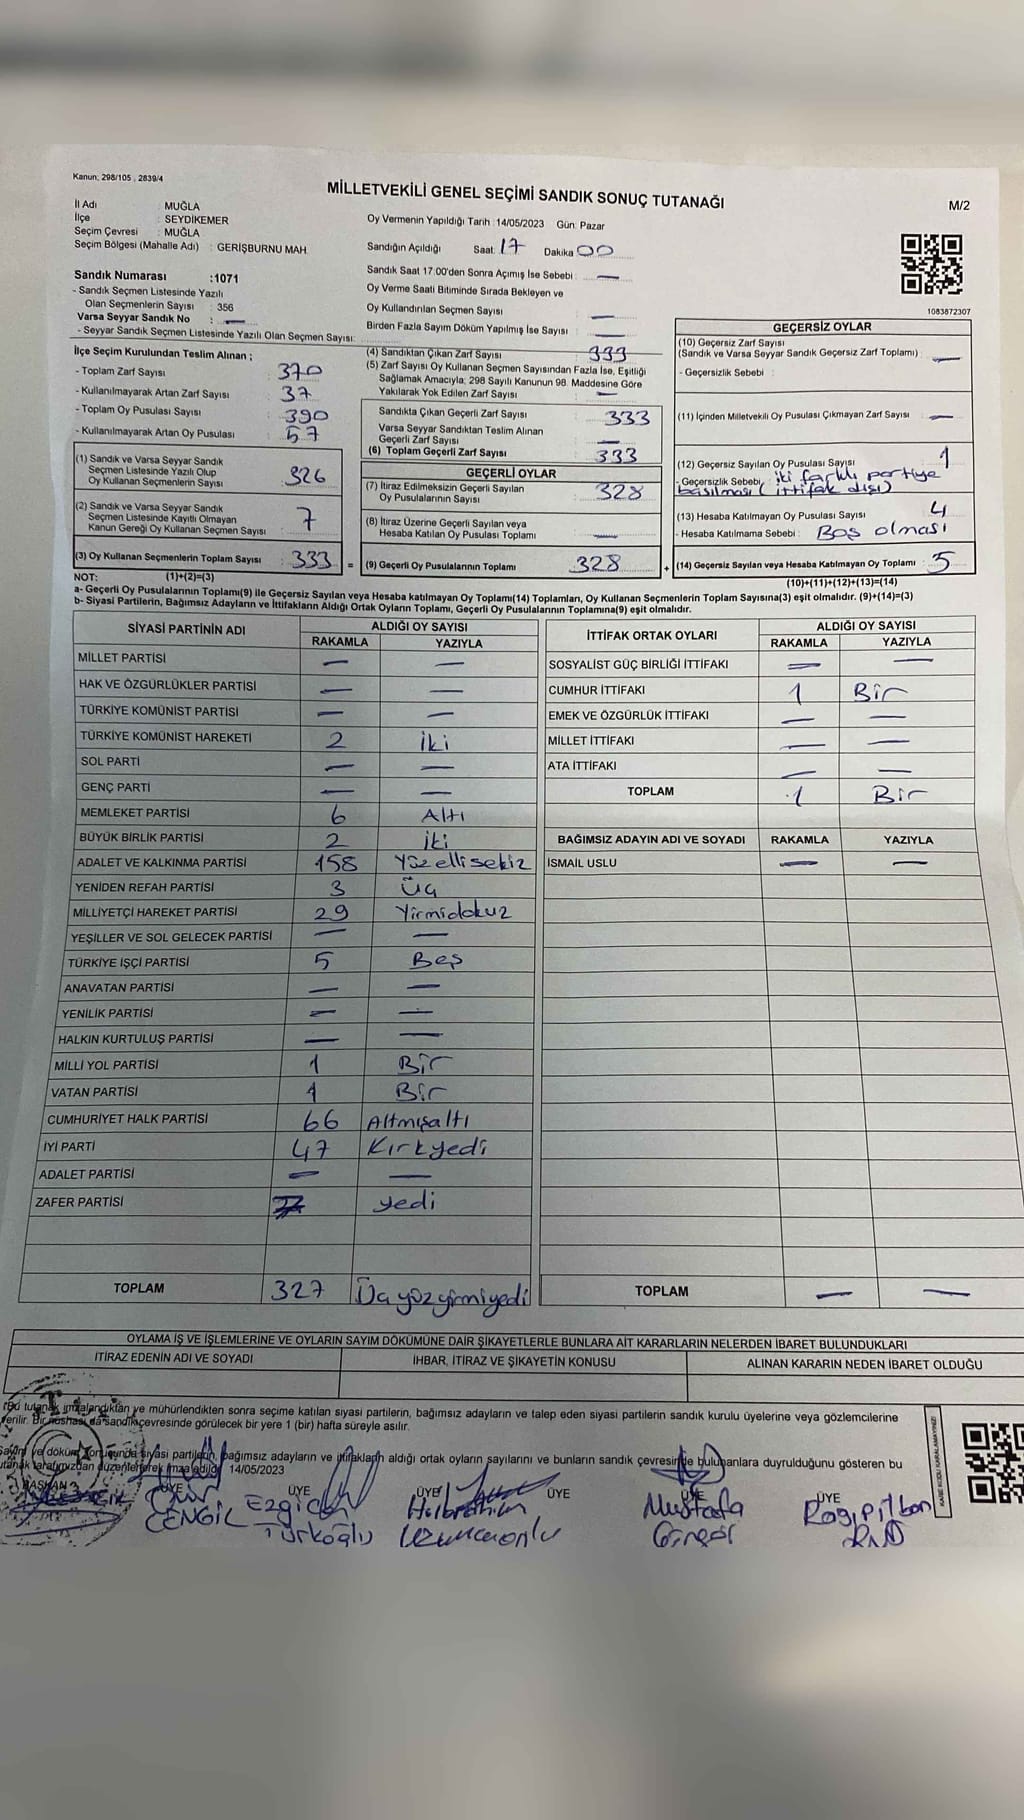 Kanun; 298/105 , 2839/4
MİLLETVEKİLİ GENEL SEÇİMİ SANDIK SONUÇ TUTANAĞI
M/2
İl Adı : MUĞLA
İlçe : SEYDİKEMER
Seçim Çevresi : MUĞLA
Seçim Bölgesi (Mahalle Adı) : GERİŞBURNU MAH.
Oy Vermenin Yapıldığı Tarih : 14/05/2023 Gün: Pazar
Sandığın Açıldığı Saat: 17 Dakika 00
Sandık Saat 17:00'den Sonra Açımış İse Sebebi : —
Oy Verme Saati Bitiminde Sırada Bekleyen ve
Oy Kullandırılan Seçmen Sayısı : —
Birden Fazla Sayım Döküm Yapılmış İse Sayısı : —
1083872307
Sandık Numarası : 1071
- Sandık Seçmen Listesinde Yazılı
Olan Seçmenlerin Sayısı : 356
Varsa Seyyar Sandık No : —
- Seyyar Sandık Seçmen Listesinde Yazılı Olan Seçmen Sayısı:
İlçe Seçim Kurulundan Teslim Alınan ;
- Toplam Zarf Sayısı : 370
- Kullanılmayarak Artan Zarf Sayısı : 37
- Toplam Oy Pusulası Sayısı : 390
- Kullanılmayarak Artan Oy Pusulası : 57
(1) Sandık ve Varsa Seyyar Sandık
Seçmen Listesinde Yazılı Olup
Oy Kullanan Seçmenlerin Sayısı : 326
(2) Sandık ve Varsa Seyyar Sandık
Seçmen Listesinde Kayıtlı Olmayan
Kanun Gereği Oy Kullanan Seçmen Sayısı : 7
(3) Oy Kullanan Seçmenlerin Toplam Sayısı : 333 =
(4) Sandıktan Çıkan Zarf Sayısı : 333
(5) Zarf Sayısı Oy Kullanan Seçmen Sayısından Fazla İse, Eşitliği
Sağlamak Amacıyla; 298 Sayılı Kanunun 98. Maddesine Göre
Yakılarak Yok Edilen Zarf Sayısı : —
Sandıkta Çıkan Geçerli Zarf Sayısı : 333
Varsa Seyyar Sandıktan Teslim Alınan
Geçerli Zarf Sayısı : —
(6) Toplam Geçerli Zarf Sayısı : 333
GEÇERLİ OYLAR
(7) İtiraz Edilmeksizin Geçerli Sayılan
Oy Pusulalarının Sayısı : 328
(8) İtiraz Üzerine Geçerli Sayılan veya
Hesaba Katılan Oy Pusulası Toplamı : —
(9) Geçerli Oy Pusulalarının Toplamı : 328 +
GEÇERSİZ OYLAR
(10) Geçersiz Zarf Sayısı
(Sandık ve Varsa Seyyar Sandık Geçersiz Zarf Toplamı) : —
- Geçersizlik Sebebi :
(11) İçinden Milletvekili Oy Pusulası Çıkmayan Zarf Sayısı : —
(12) Geçersiz Sayılan Oy Pusulası Sayısı : 1
- Geçersizlik Sebebi : iki farklı partiye
basılması ( ittifak dışı)
(13) Hesaba Katılmayan Oy Pusulası Sayısı : 4
- Hesaba Katılmama Sebebi : Boş olması
(14) Geçersiz Sayılan veya Hesaba Katılmayan Oy Toplamı : 5
NOT: (1)+(2)=(3)
(10)+(11)+(12)+(13)=(14)
a- Geçerli Oy Pusulalarının Toplamı(9) ile Geçersiz Sayılan veya Hesaba katılmayan Oy Toplamı(14) Toplamları, Oy Kullanan Seçmenlerin Toplam Sayısına(3) eşit olmalıdır. (9)+(14)=(3)
b- Siyasi Partilerin, Bağımsız Adayların ve İttifakların Aldığı Ortak Oyların Toplamı, Geçerli Oy Pusulalarının Toplamına(9) eşit olmalıdır.
SİYASİ PARTİNİN ADI ALDIĞI OY SAYISI
RAKAMLA YAZIYLA
MİLLET PARTİSİ — —
HAK VE ÖZGÜRLÜKLER PARTİSİ — —
TÜRKİYE KOMÜNİST PARTİSİ — —
TÜRKİYE KOMÜNİST HAREKETİ 2 İki
SOL PARTİ — —
GENÇ PARTİ — —
MEMLEKET PARTİSİ 6 Altı
BÜYÜK BİRLİK PARTİSİ 2 İki
ADALET VE KALKINMA PARTİSİ 158 Yüzellisekiz
YENİDEN REFAH PARTİSİ 3 Üç
MİLLİYETÇİ HAREKET PARTİSİ 29 Yirmidokuz
YEŞİLLER VE SOL GELECEK PARTİSİ — —
TÜRKİYE İŞÇİ PARTİSİ 5 Beş
ANAVATAN PARTİSİ — —
YENİLİK PARTİSİ — —
HALKIN KURTULUŞ PARTİSİ — —
MİLLİ YOL PARTİSİ 1 Bir
VATAN PARTİSİ 1 Bir
CUMHURİYET HALK PARTİSİ 66 Altmışaltı
İYİ PARTİ 47 Kırkyedi
ADALET PARTİSİ — —
ZAFER PARTİSİ 7 yedi
TOPLAM 327 Üçyüzyirmiyedi
İTTİFAK ORTAK OYLARI ALDIĞI OY SAYISI
RAKAMLA YAZIYLA
SOSYALİST GÜÇ BİRLİĞİ İTTİFAKI — —
CUMHUR İTTİFAKI 1 Bir
EMEK VE ÖZGÜRLÜK İTTİFAKI — —
MİLLET İTTİFAKI — —
ATA İTTİFAKI — —
TOPLAM 1 Bir
BAĞIMSIZ ADAYIN ADI VE SOYADI RAKAMLA YAZIYLA
İSMAİL USLU — —
TOPLAM — —
OYLAMA İŞ VE İŞLEMLERİNE VE OYLARIN SAYIM DÖKÜMÜNE DAİR ŞİKAYETLERLE BUNLARA AİT KARARLARIN NELERDEN İBARET BULUNDUKLARI
İTİRAZ EDENİN ADI VE SOYADI İHBAR, İTİRAZ VE ŞİKAYETİN KONUSU ALINAN KARARIN NEDEN İBARET OLDUĞU
Bu tutanak imzalandıktan ve mühürlendikten sonra seçime katılan siyasi partilerin, bağımsız adayların ve talep eden siyasi partilerin sandık kurulu üyelerine veya gözlemcilerine
verilir. Bir nüshası da sandık çevresinde görülecek bir yere 1 (bir) hafta süreyle asılır.
Sayım ve döküm sonucunda siyasi partilerin, bağımsız adayların ve ittifakların aldığı ortak oyların sayılarını ve bunların sandık çevresinde bulunanlara duyrulduğunu gösteren bu
tutanak tarafımızdan düzenlenerek imza edildi. 14/05/2023
BAŞKAN ÜYE ÜYE ÜYE ÜYE ÜYE ÜYE
CENGİL
Ezgi
Türkoğlu
Halibrahim
Mustafa
Güngör
KARE KODU KARALAMAYINIZ!